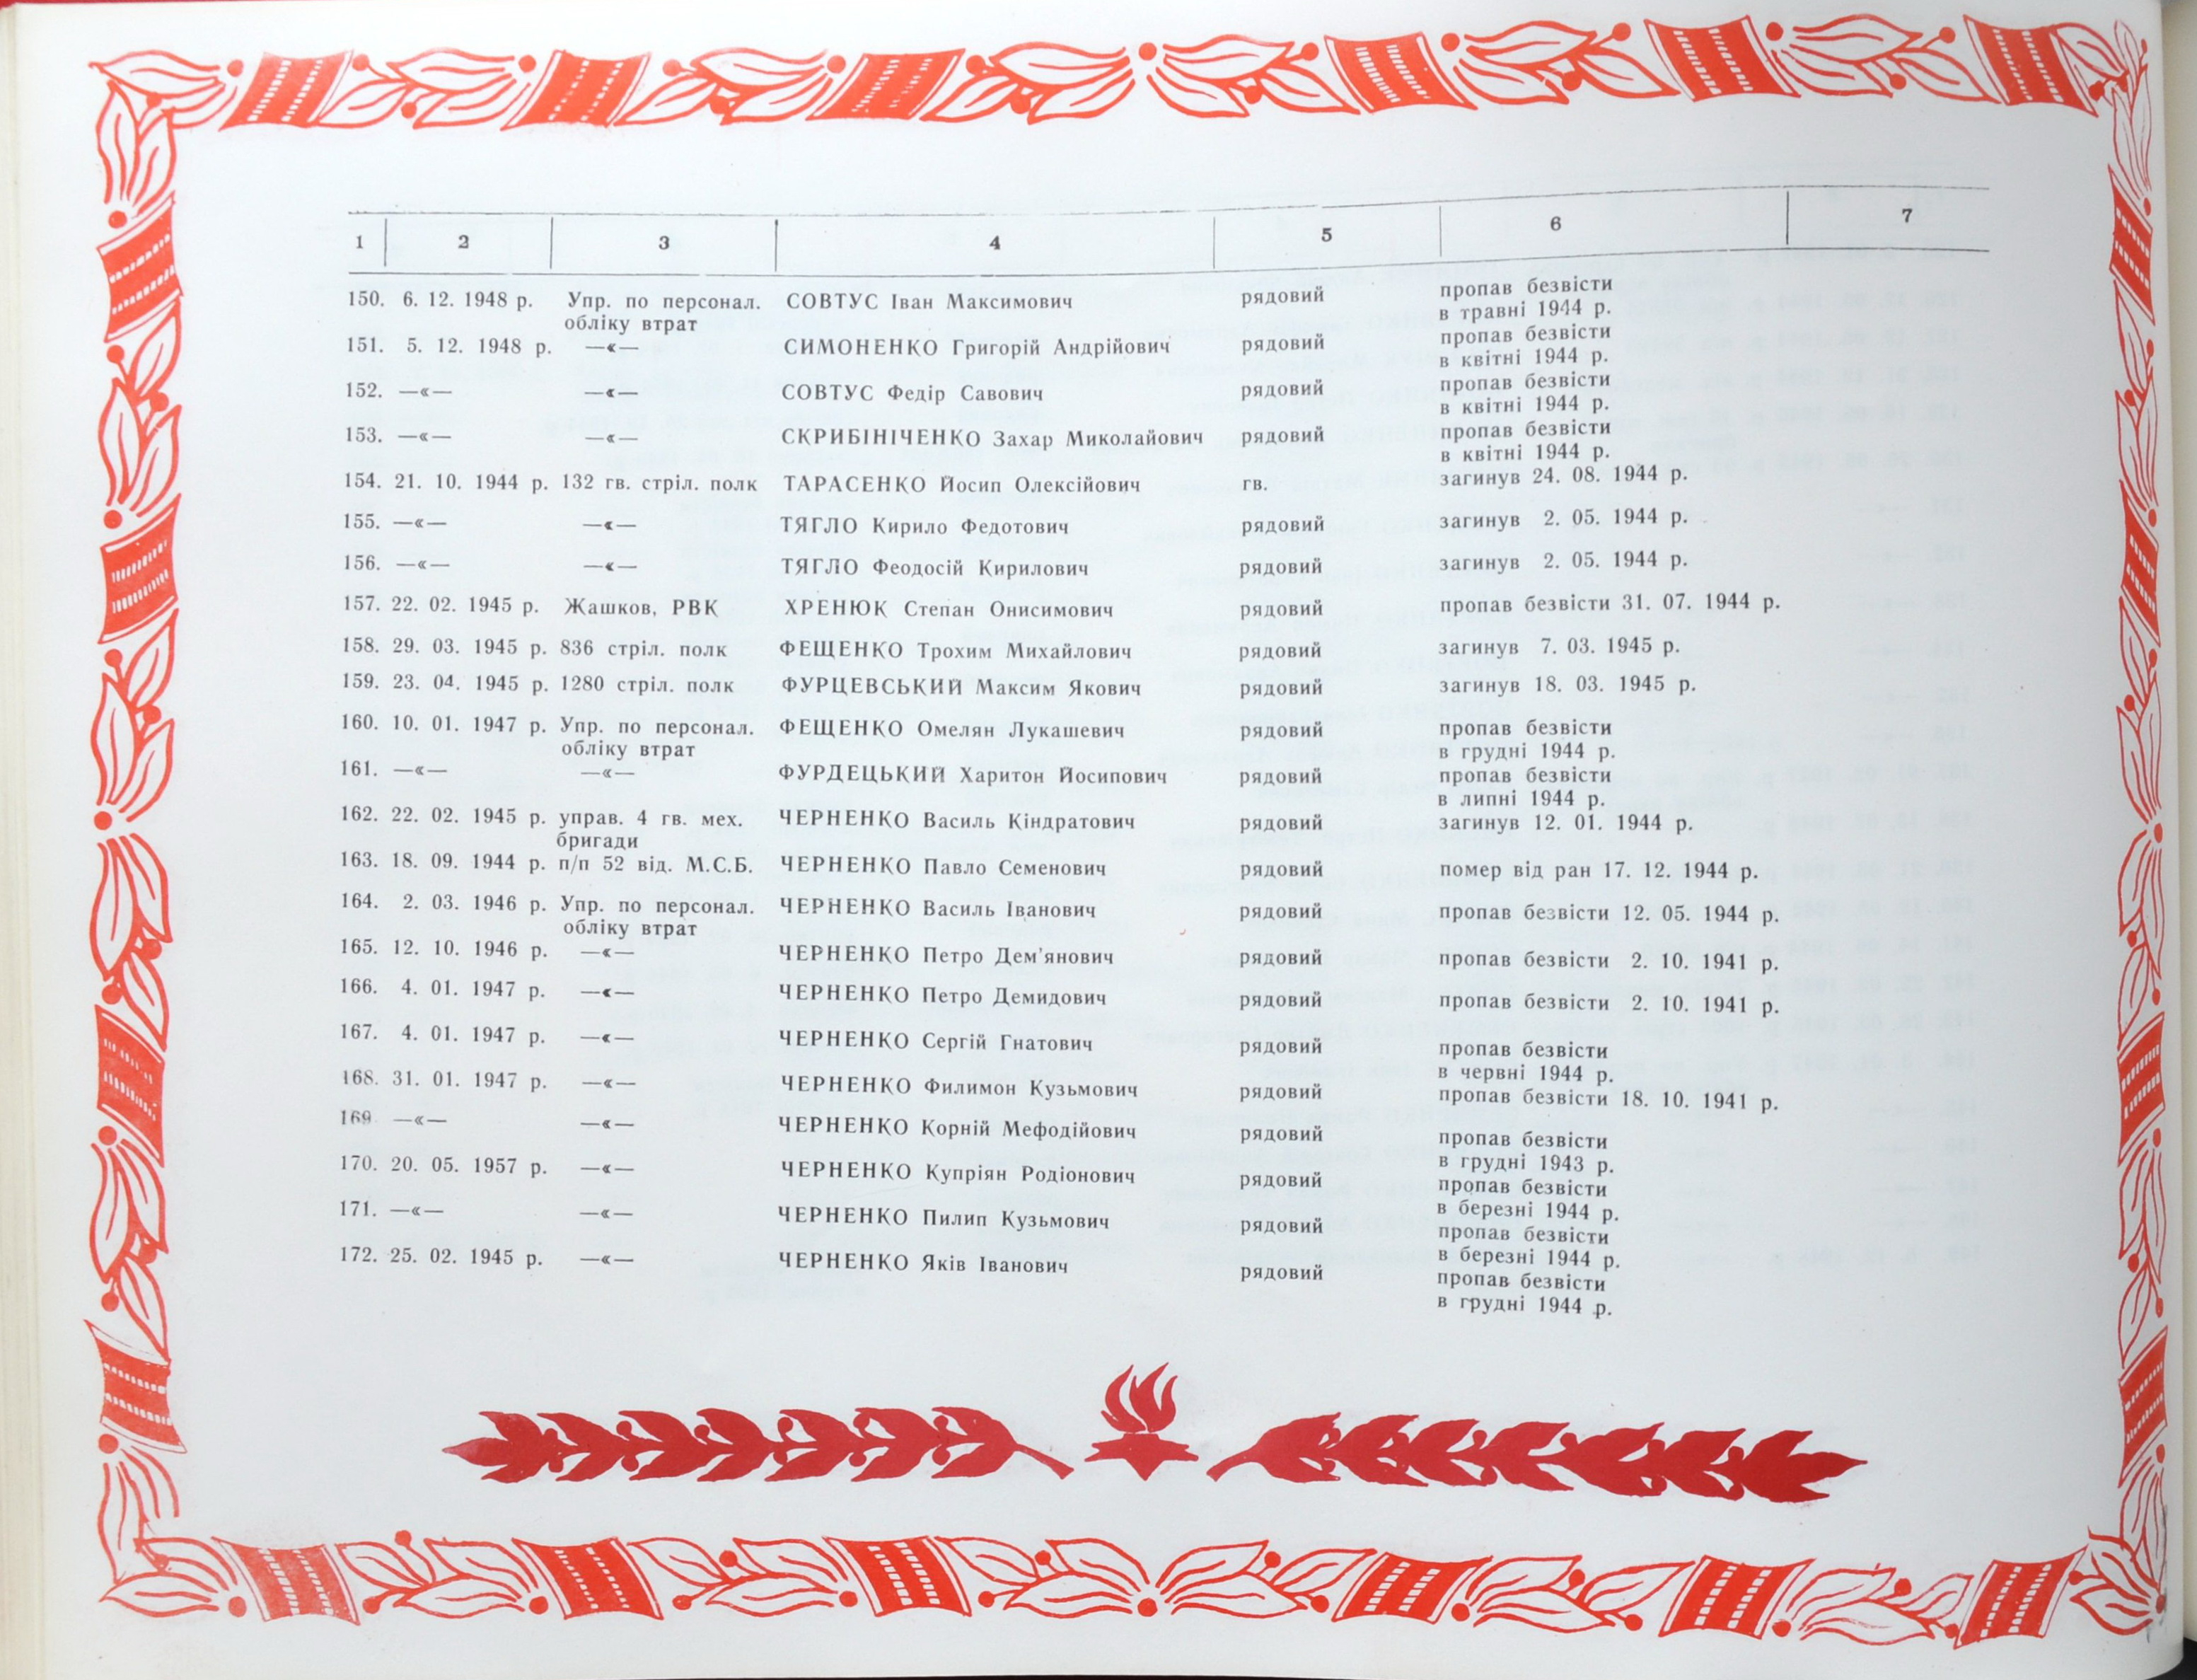 1 2 3 4 5 6 7
150. 6. 12. 1948 р. Упр. по персонал. СОВТУС Іван Максимович рядовий пропав безвісти
обліку втрат в травні 1944 р.
151. 5. 12. 1948 р. —«— СИМОНЕНКО Григорій Андрійович рядовий пропав безвісти
в квітні 1944 р.
152. —«— —«— СОВТУС Федір Савович рядовий пропав безвісти
в квітні 1944 р.
153. —«— —«— СКРИБІНІЧЕНКО Захар Миколайович рядовий пропав безвісти
в квітні 1944 р.
154. 21. 10. 1944 р. 132 гв. стріл. полк ТАРАСЕНКО Йосип Олексійович гв. загинув 24. 08. 1944 р.
155. —«— —«— ТЯГЛО Кирило Федотович рядовий загинув 2. 05. 1944 р.
156. —«— —«— ТЯГЛО Феодосій Кирилович рядовий загинув 2. 05. 1944 р.
157. 22. 02. 1945 р. Жашков, РВК ХРЕНЮК Степан Онисимович рядовий пропав безвісти 31. 07. 1944 р.
158. 29. 03. 1945 р. 836 стріл. полк ФЕЩЕНКО Трохим Михайлович рядовий загинув 7. 03. 1945 р.
159. 23. 04. 1945 р. 1280 стріл. полк ФУРЦЕВСЬКИЙ Максим Якович рядовий загинув 18. 03. 1945 р.
160. 10. 01. 1947 р. Упр. по персонал. ФЕЩЕНКО Омелян Лукашевич рядовий пропав безвісти
обліку втрат в грудні 1944 р.
161. —«— —«— ФУРДЕЦЬКИЙ Харитон Йосипович рядовий пропав безвісти
в липні 1944 р.
162. 22. 02. 1945 р. управ. 4 гв. мех. ЧЕРНЕНКО Василь Кіндратович рядовий загинув 12. 01. 1944 р.
бригади
163. 18. 09. 1944 р. п/п 52 від. М.С.Б. ЧЕРНЕНКО Павло Семенович рядовий помер від ран 17. 12. 1944 р.
164. 2. 03. 1946 р. Упр. по персонал. ЧЕРНЕНКО Василь Іванович рядовий пропав безвісти 12. 05. 1944 р.
обліку втрат
165. 12. 10. 1946 р. —«— ЧЕРНЕНКО Петро Дем'янович рядовий пропав безвісти 2. 10. 1941 р.
166. 4. 01. 1947 р. —«— ЧЕРНЕНКО Петро Демидович рядовий пропав безвісти 2. 10. 1941 р.
167. 4. 01. 1947 р. —«— ЧЕРНЕНКО Сергій Гнатович рядовий пропав безвісти
в червні 1944 р.
168. 31. 01. 1947 р. —«— ЧЕРНЕНКО Филимон Кузьмович рядовий пропав безвісти 18. 10. 1941 р.
169 —«— —«— ЧЕРНЕНКО Корній Мефодійович рядовий пропав безвісти
в грудні 1943 р.
170. 20. 05. 1957 р. —«— ЧЕРНЕНКО Купріян Родіонович рядовий пропав безвісти
в березні 1944 р.
171. —«— —«— ЧЕРНЕНКО Пилип Кузьмович рядовий пропав безвісти
в березні 1944 р.
172. 25. 02. 1945 р. —«— ЧЕРНЕНКО Яків Іванович рядовий пропав безвісти
в грудні 1944 р.